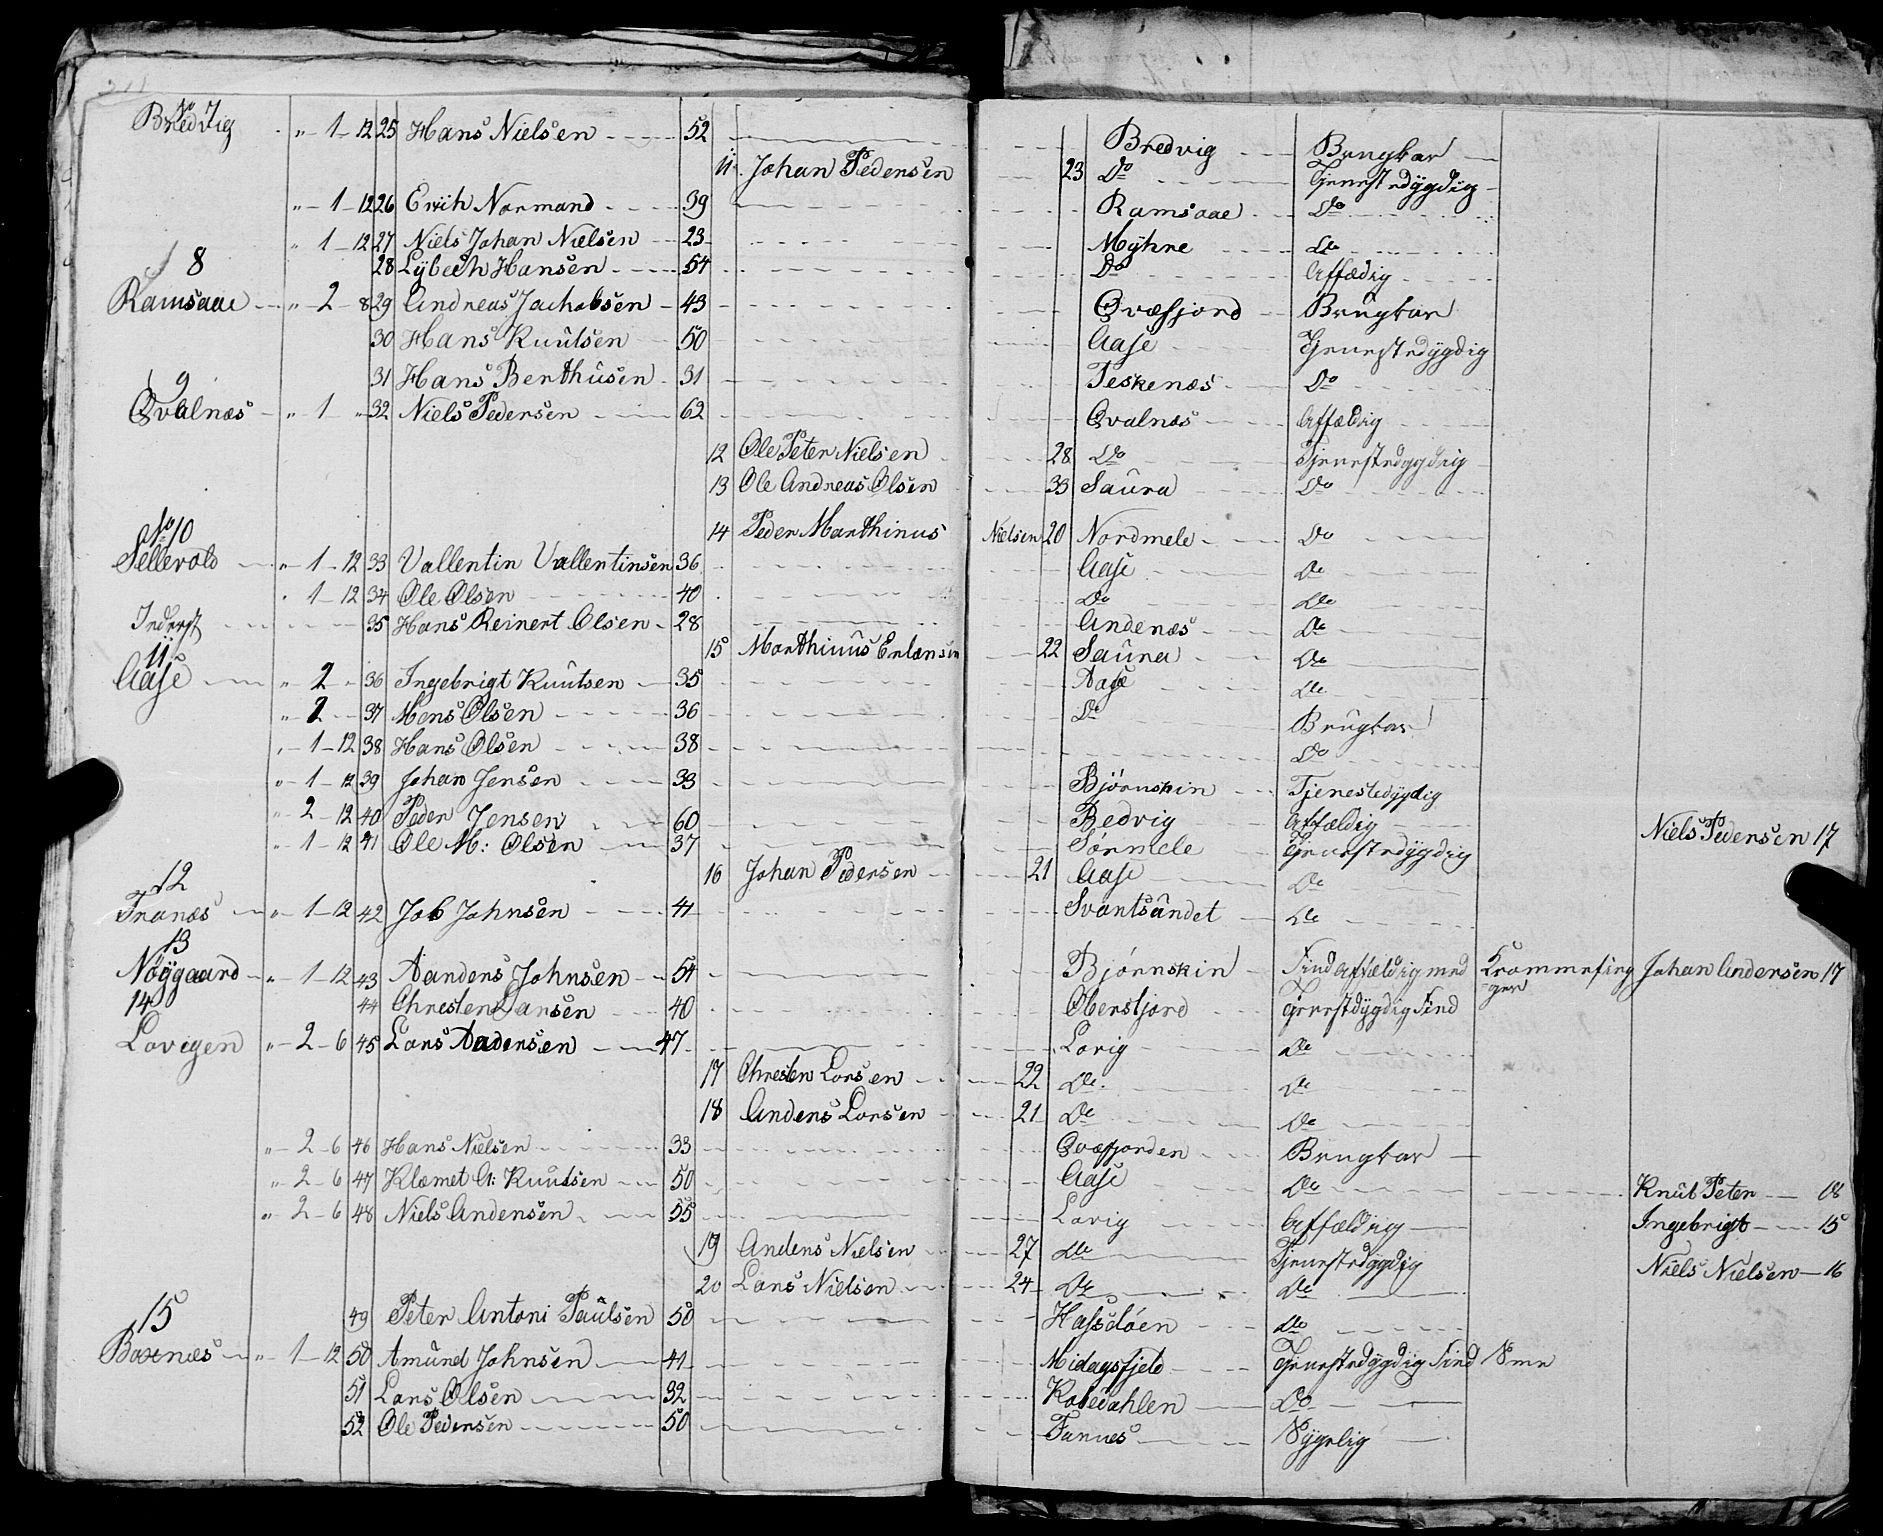 No 7
Bredvig " - 1 - 12 25 Hans Nielsen 52 Bredvig Brugbar
11 Johan Pedersen 23 Do Tjenestdygdig
" - 1 - 12 26 Erich Normand 39 Ramsaae Do
" 1 - 12 27 Niels Johan Nielsen 23 Myhre Do
8 28 Lybech Hansen 54 Do Affædig
Ramsaae " - 2 - 8 29 Andreas Jachobsen 43 Qvæfjord Brugbar
30 Hans Knutsen 50 Aase Tjenestdygdig
31 Hans Berthusen 31 Teskenæs Do
9
Qvalnæs " - 1 " 32 Niels Pedersen 62 Qvalnæs Affældig
12 Ole Peter Nielsen 28 Do Tjenestdygdig
13 Ole Andreas Olsen 33 Saura Do
No 10 14 Peder Marthinus Nielsen 20 Nordmele Do
Sellevold " - 1 - 12 33 Vallentin Vallentinsen 36 Aase Do
" 1 - 12 34 Ole Olsen 40 Do Do
Inderst 35 Hans Reinert Olsen 28 Andenæs Do
11 15 Marthinus Erlansen 22 Saura Do
Aase " - 2 " 36 Ingebrigt Knutsen 35 Aase Do
" - 2 - 37 Mons Olsen 36 Do Brugbar
" - 1 - 12 38 Hans Olsen 38 Do
" - 1 - 12 39 Johan Jensen 33 Bjørnskin Tjenestedygdig
" - 2 - 12 40 Peder Jensen 60 Bedvig Affældig Niels Pedersen 17
" - 1 - 12 41 Ole M: Olsen 37 Sørmele Tjenestdygdig
12 16 Johan Pedersen 21 Aase Do
Tranæs " - 1 - 12 42 Job Johnsen 41 Svartsundet Do
13
Nøygaard " - 1 - 12 43 Aanders Johnsen 54 Bjørnskin Find Affældig med Krommefinger Johan Andersen 17
14 44 Chresten Larsen 40 Oberstjord Tjenestdygdig Find
Lovigen " - 2 - 6 45 Lars Aadersen 47 Lovig Do
17 Chresten Larsen 22 Do Do
18 Anders Larsen 21 Do Do
" - 2 - 6 46 Hans Nielsen 33 Qvæfjorden Brugbar
" - 2 - 6 47 Klæmet A: Knutsen 50 Aase Do Knut Peter 18
" - 2 - 6 48 Niels Andersen 55 Lovig Affældrig Ingebrigt 15
19 Anders Nielsen 27 Do Tjenestdygdig Niels Nielsen 16
20 Lars Nielsen 24 Do Do
15 49 Peter Antoni Paulsen 50 Do
Boxnæs " 1 - 12 50 Amund Johnsen 41 Midagsfjeld Tjenestdygdig Find
51 Lars Olsen 32 Kobedahlen Do
52 Ole Pedersen 50 Sygelig